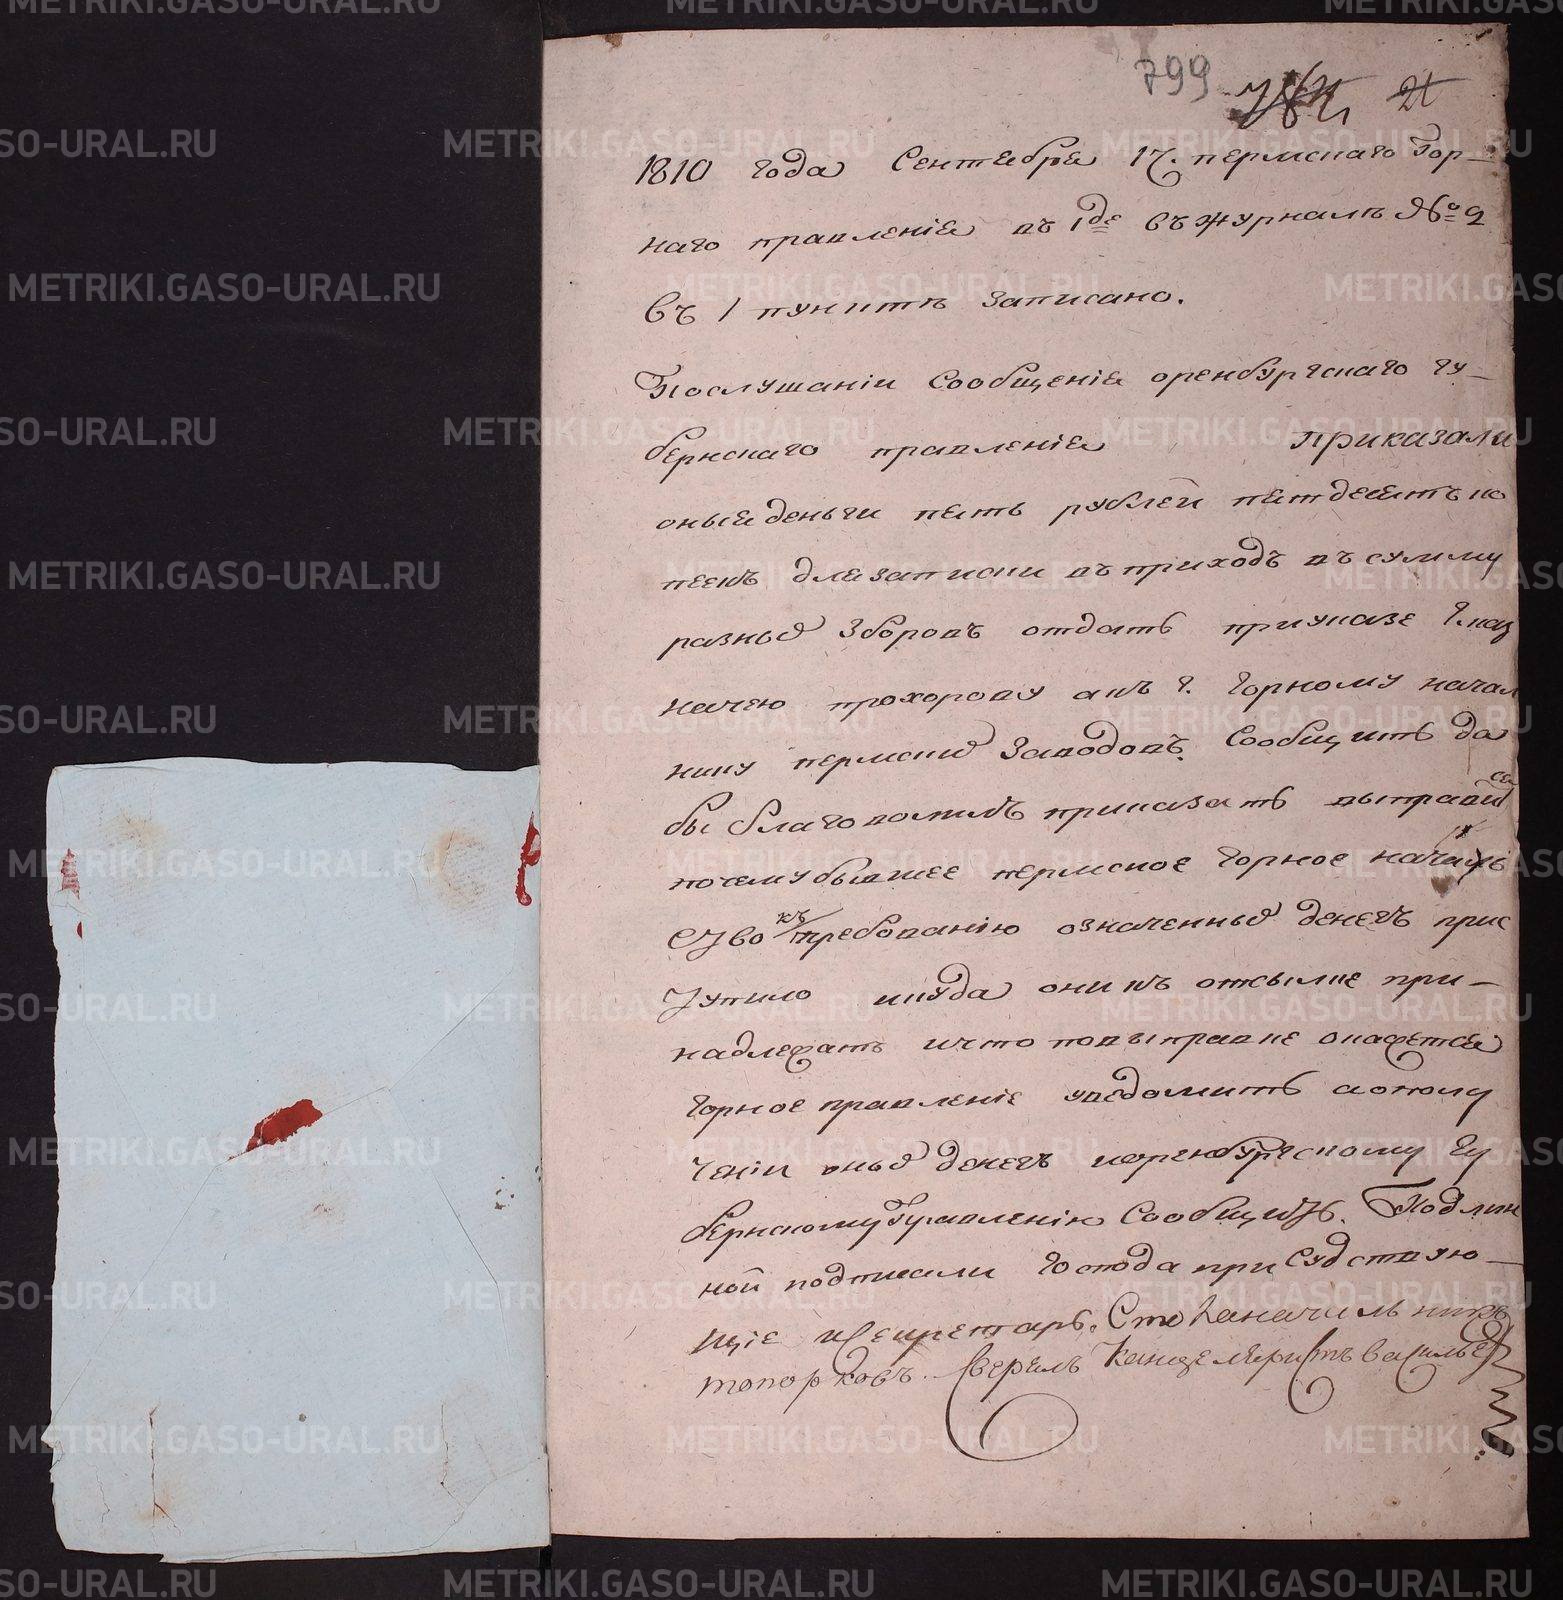 799
21
1810 года Сентября 17. пермскаго Гор-
наго правленія въ 1де въ журналѣ № 9
въ 1 пунктѣ записано.
Послушаніи Сообщенія оренбургскаго гу-
бернскаго правленія приказали
оныя деньги пять рублей пятдесятъ ко
пеекъ для записки въ приходъ въ сумму
разныхъ зборовъ отдать приуказе Гказ
начею прохорову акъ г. горному начал
нику пермскихъ заводовъ. Сообщить да
бы благоволилъ приказать выправится
почему бывшее пермское горное началь
ство къ требованію означенныхъ денегъ прис
тупило икуда они къ отсылке при-
надлежатъ ичто повыправке окажется
горное правленіе уведомить аополу
ченіи оныхъ денегъ иоренбургскому гу
бернскому правленію Сообщить. Подлин
ной подписали Господа присудствую-
щіе исекретарь. Сто
топорковъ. Сверялъ Канцеляристъ василье
METRIKI.GASO-URAL.RU